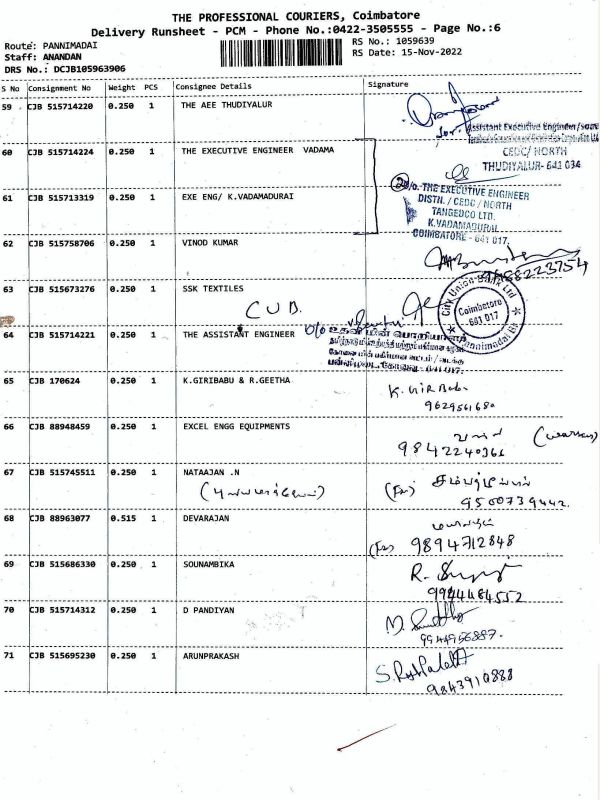 THE PROFESSIONAL COURIERS, Coimbatore
Delivery Runsheet - PCM - Phone No.:0422-3505555 - Page No.:6
Route: PANNIMADAI
RS No.: 1059639
Staff: ANANDAN
RS Date: 15-Nov-2022
DRS No.: DCJB105963906
S No Consignment No Weight PCS Consignee Details Signature
59 CJB 515714220 0.250 1 THE AEE THUDIYALUR
for. Assistant Executive Engineer
60 CJB 515714224 0.250 1 THE EXECUTIVE ENGINEER VADAMA
CEDC/ NORTH
THUDIYALUR- 641 034
O/o. THE EXECUTIVE ENGINEER
61 CJB 515713319 0.250 1 EXE ENG/ K.VADAMADURAI
DISTN. / CEDC / NORTH
TANGEDCO LTD.
K.VADAMADURAI
COIMBATORE - 641 017.
62 CJB 515758706 0.250 1 VINOD KUMAR
63 CJB 515673276 0.250 1 SSK TEXTILES
CUB.
City Union Bank Ltd
Coimbatore
641 017
64 CJB 515714221 0.250 1 THE ASSISTANT ENGINEER
O/o உதவி மின் பொறியாளர்
65 CJB 170624 0.250 1 K.GIRIBABU & R.GEETHA
K. GIRI Babu
9629561680
66 CJB 88948459 0.250 1 EXCEL ENGG EQUIPMENTS
9842240366
67 CJB 515745511 0.250 1 NATAAJAN .N
9500739442.
68 CJB 88963077 0.515 1 DEVARAJAN
9894712848
69 CJB 515686330 0.250 1 SOUNAMBIKA
R.
9944484552
70 CJB 515714312 0.250 1 D PANDIYAN
M.
9944956887.
71 CJB 515695230 0.250 1 ARUNPRAKASH
9843910888